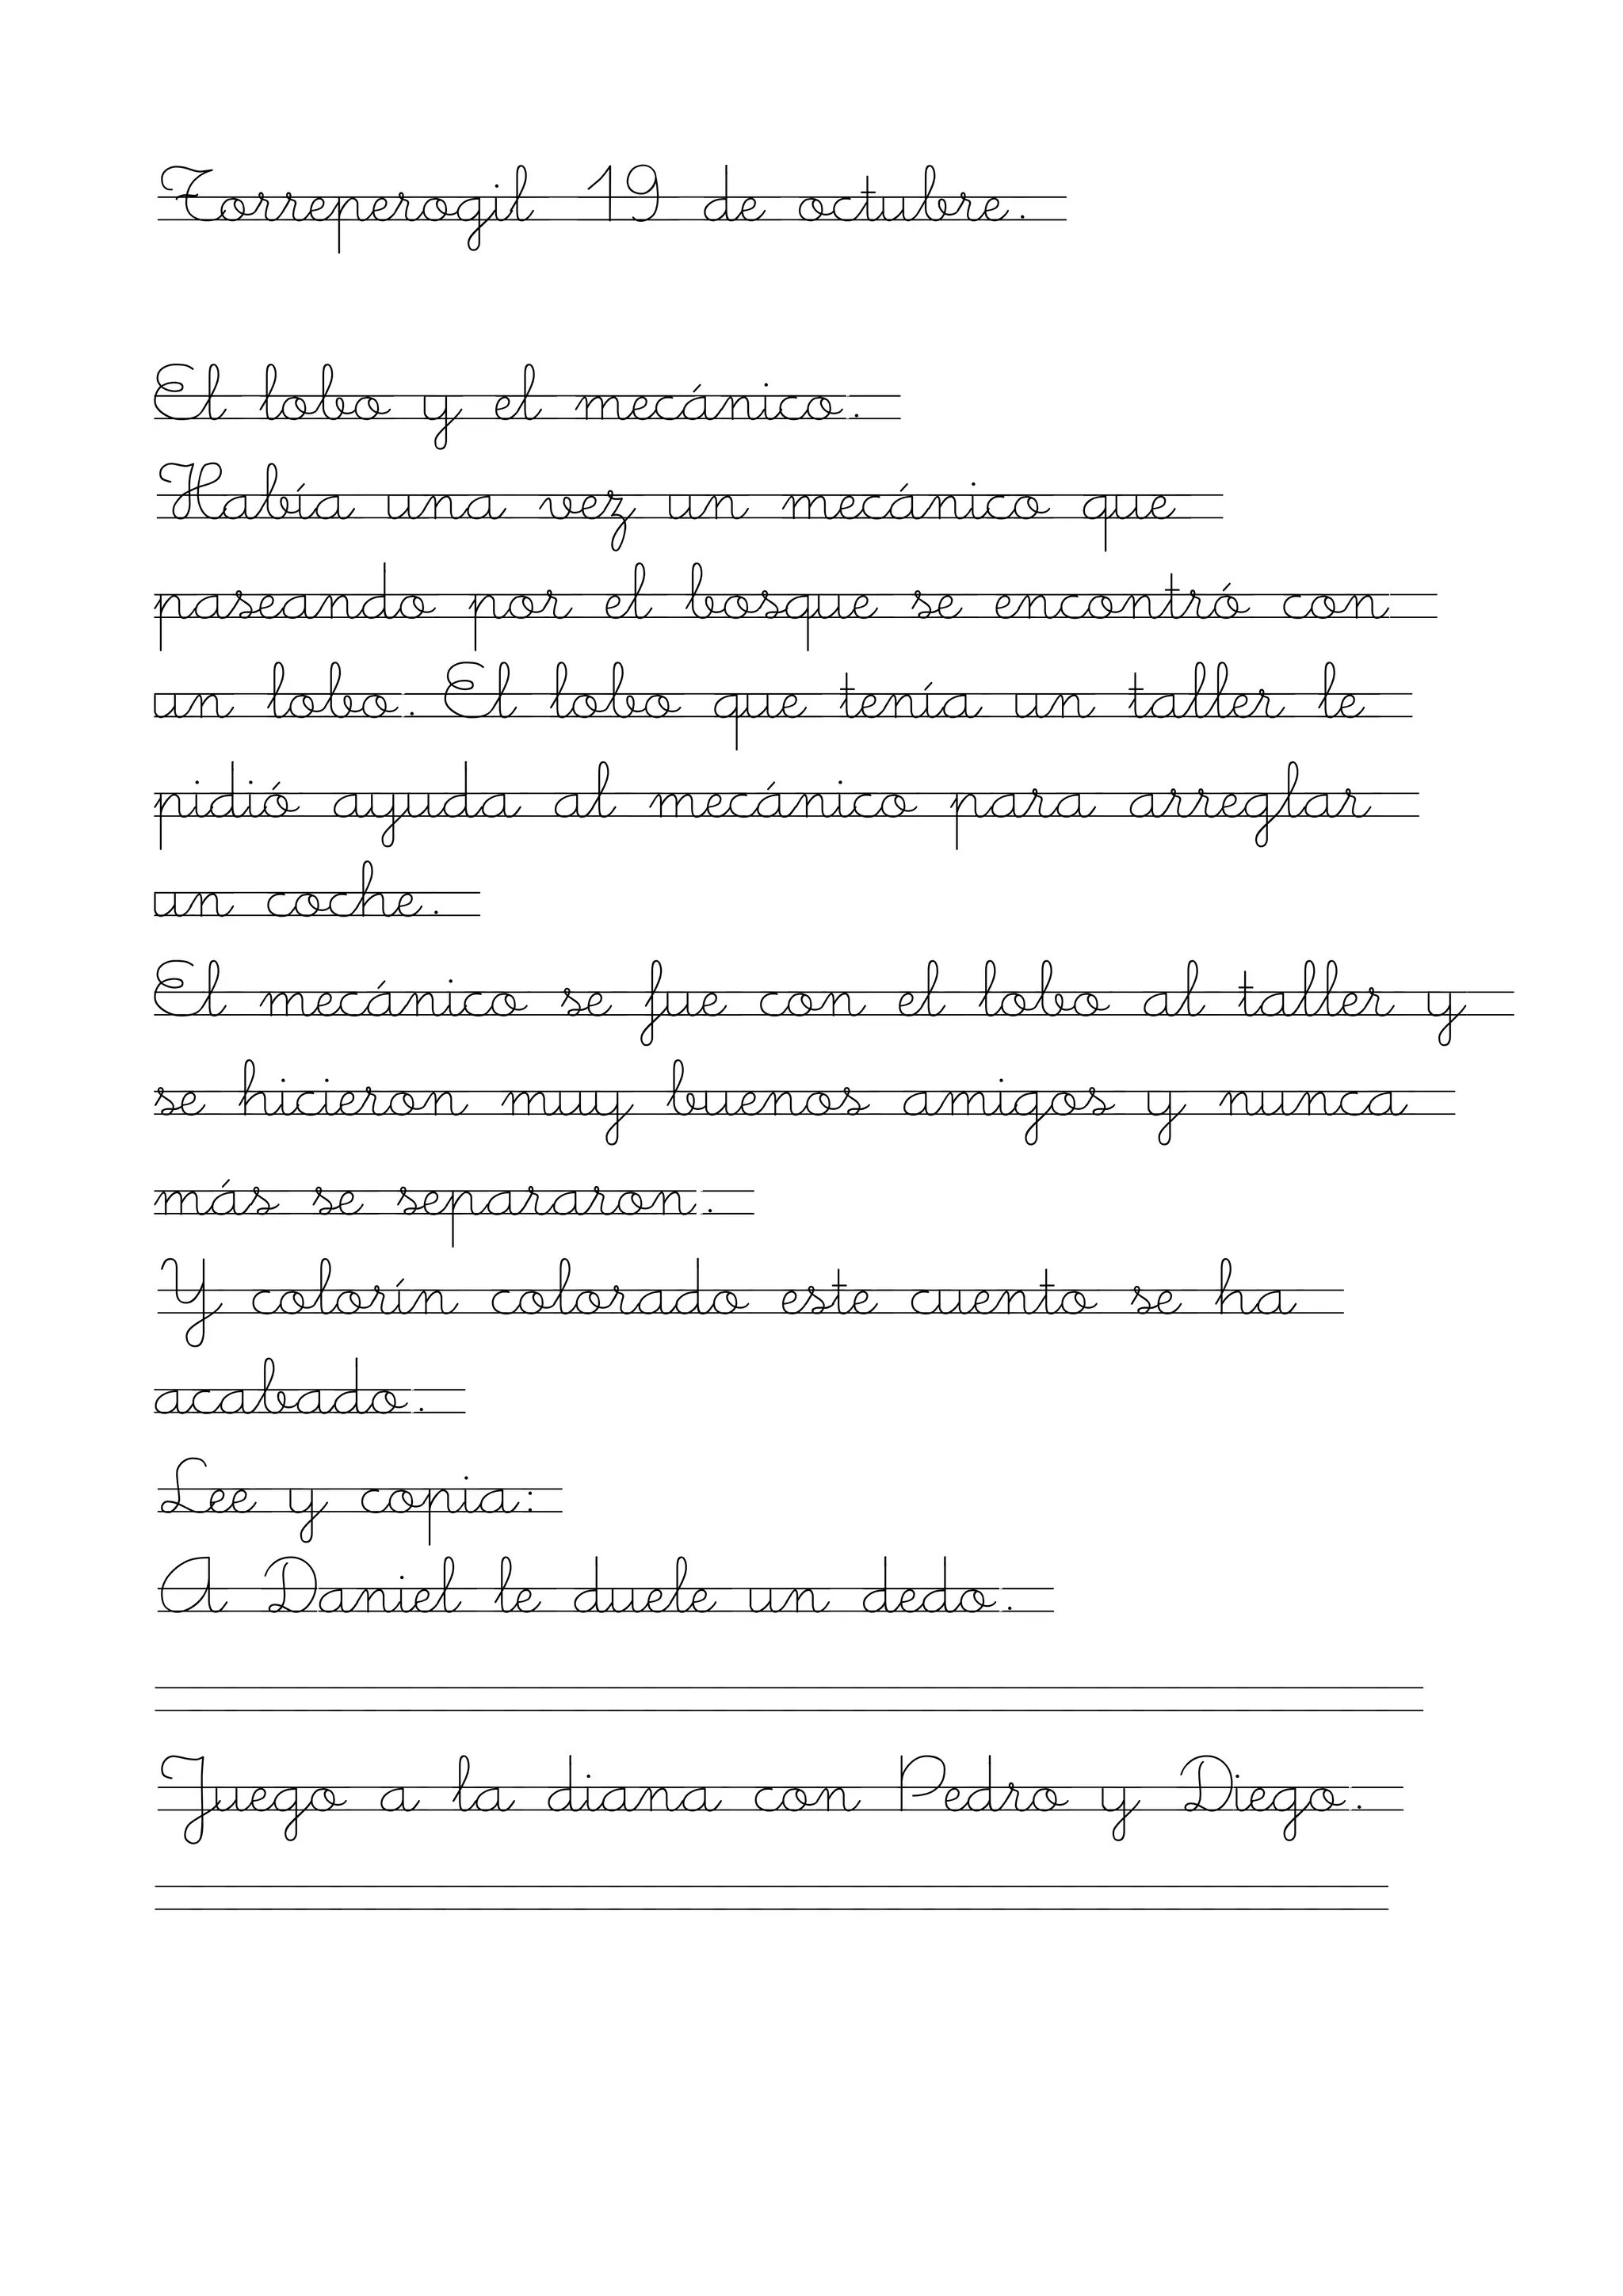 Torreperogil 19 de octubre.
El lobo y el mecánico.
Había una vez un mecánico que
paseando por el bosque se encontró con
un lobo. El lobo que tenía un taller le
pidió ayuda al mecánico para arreglar
un coche.
El mecánico se fue con el lobo al taller y
se hicieron muy buenos amigos y nunca
más se separaron.
Y colorín colorado este cuento se ha
acabado.
Lee y copia:
A Daniel le duele un dedo.
Juego a la diana con Pedro y Diego.